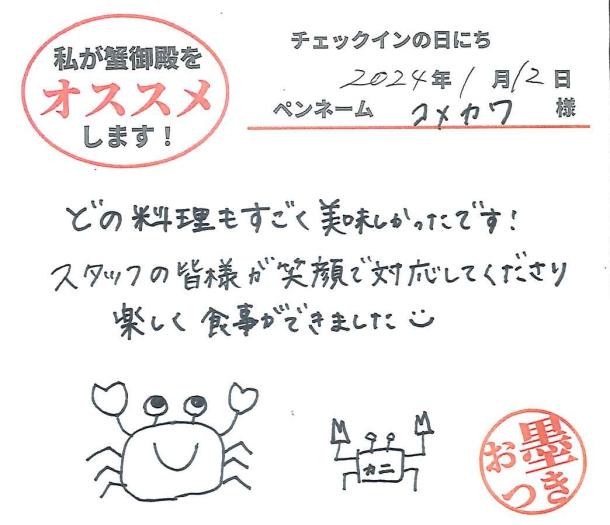 私が蟹御殿を
オススメ
します！
チェックインの日にち
2024年1月12日
ペンネーム コメカワ 様
どの料理もすごく美味しかったです！
スタッフの皆様が笑顔で対応してくださり
楽しく食事ができました
カニ
お墨
つき